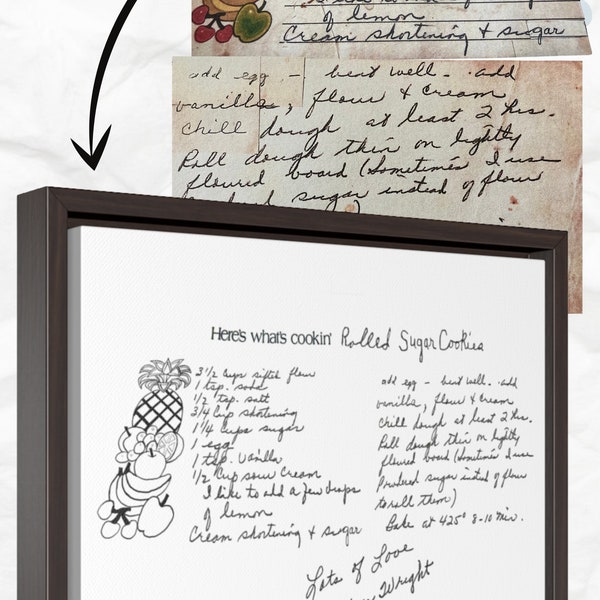 of lemon
Cream shortening & sugar
add egg - beat well. add
vanilla, flour & cream
chill dough at least 2 hrs.
Roll dough thin on lightly
floured board (Sometimes I use
sugar instead of flour
Here's what's cookin' Rolled Sugar Cookies
3 1/2 cups sifted flour
1 tsp. soda
1/2 tsp. salt
3/4 cup shortening
1 1/4 cups sugar
1 egg
1 tsp. vanilla
1/2 cup sour cream
I like to add a few drops
of lemon
Cream shortening & sugar
add egg - beat well. add
vanilla, flour & cream
chill dough at least 2 hrs.
Roll dough thin on lightly
floured board (Sometimes I use
Powdered sugar instead of flour
to roll them)
Bake at 425° 8-10 min.
Lots of Love
Wright